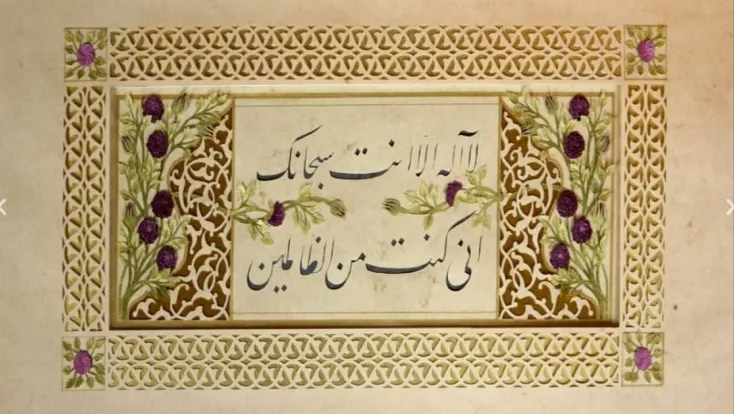 لا آله الا انت سبحانک
انی کنت من الظالمین